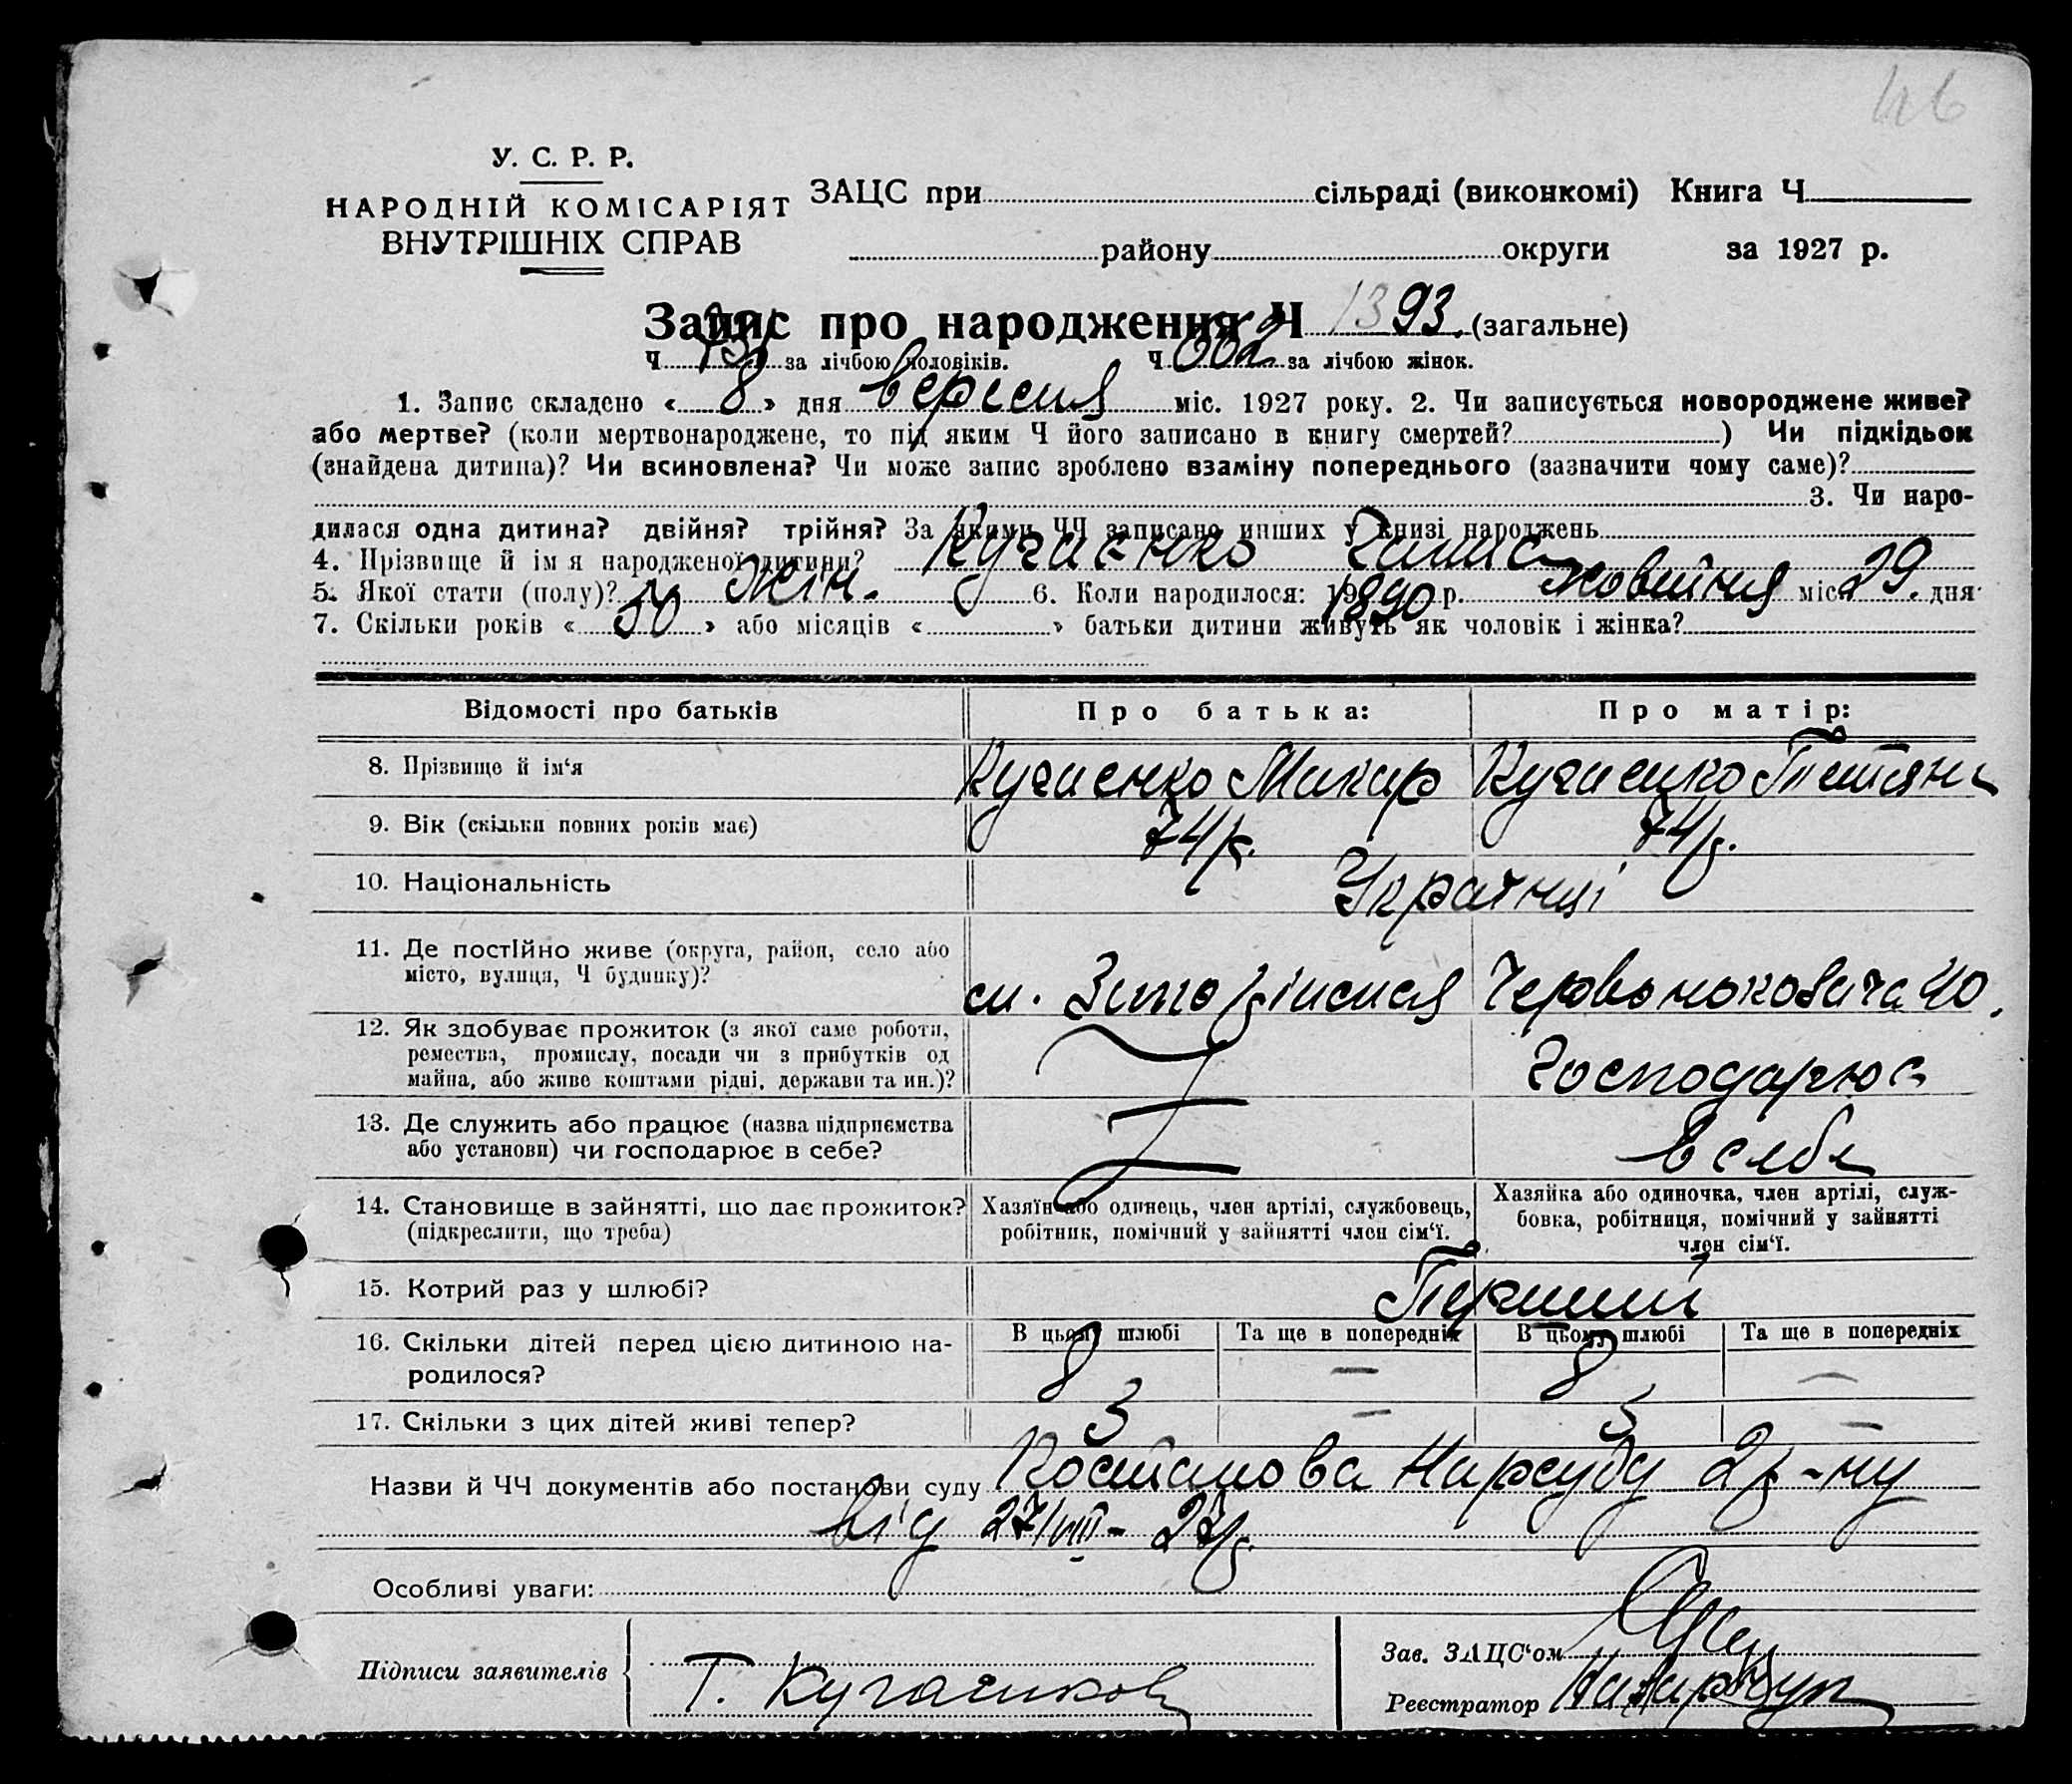 46
У. С. Р. Р.
НАРОДНІЙ КОМІСАРІЯТ
ВНУТРІШНІХ СПРАВ
ЗАЦС при сільраді (виконкомі) Книга Ч
району округи за 1927 р.
Запис про народження Ч 1393 (загальне)
Ч 731 за лічбою чоловіків. Ч 662 за лічбою жінок.
1. Запис складено « 8 » дня вересня міс. 1927 року. 2. Чи записується новороджене живе?
або мертве? (коли мертвонароджене, то під яким Ч його записано в книгу смертей? ) Чи підкідьок
(знайдена дитина)? Чи всиновлена? Чи може запис зроблено взаміну попереднього (зазначити чому саме)?
3. Чи наро-
дилася одна дитина? двійня? трійня? За якими ЧЧ записано инших у книзі народжень
4. Прізвище й ім я народженої дитини? Кугаєнко Галина
5. Якої стати (полу)? Жін. 6. Коли народилося: 1890 р. жовтня міс. 29. дня
7. Скільки років « 50 » або місяців « » батьки дитини живуть як чоловік і жінка?
Відомості про батьків Про батька: Про матір:
8. Прізвище й ім‘я Кугаєнко Макар Кугаєнко Тетяна
9. Вік (скільки повних років має) 74 р. 74 р.
10. Національність Українці
11. Де постійно живе (округа, район, село або
місто, вулиця, Ч будинку)?
Червонокозача 40.
12. Як здобуває прожиток (з якої саме роботи,
ремества, промислу, посади чи з прибутків од
майна, або живе коштами рідні, держави та ин.)?
Господарює
13. Де служить або працює (назва підприємства
або установи) чи господарює в себе?
в себе
14. Становище в зайнятті, що дає прожиток?
(підкреслити, що треба)
Хазяїн або одинець, член артілі, службовець,
робітник, помічний у зайнятті член сім‘ї.
Хазяйка або одиночка, член артілі, служ-
бовка, робітниця, помічний у зайнятті
член сім‘ї.
15. Котрий раз у шлюбі? Перший
16. Скільки дітей перед цією дитиною на-
родилося?
В цьому шлюбі Та ще в попередніх В цьому шлюбі Та ще в попередніх
8 — 8 —
17. Скільки з цих дітей живі тепер? 3 — 3 —
Назви й ЧЧ документів або постанови суду Постанова Нарсуду 2 р-ну
від 27/VIII - 27 р.
Особливі уваги:
Підписи заявителів Т. Кугаєнкова
Зав. ЗАЦС‘ом
Реєстратор